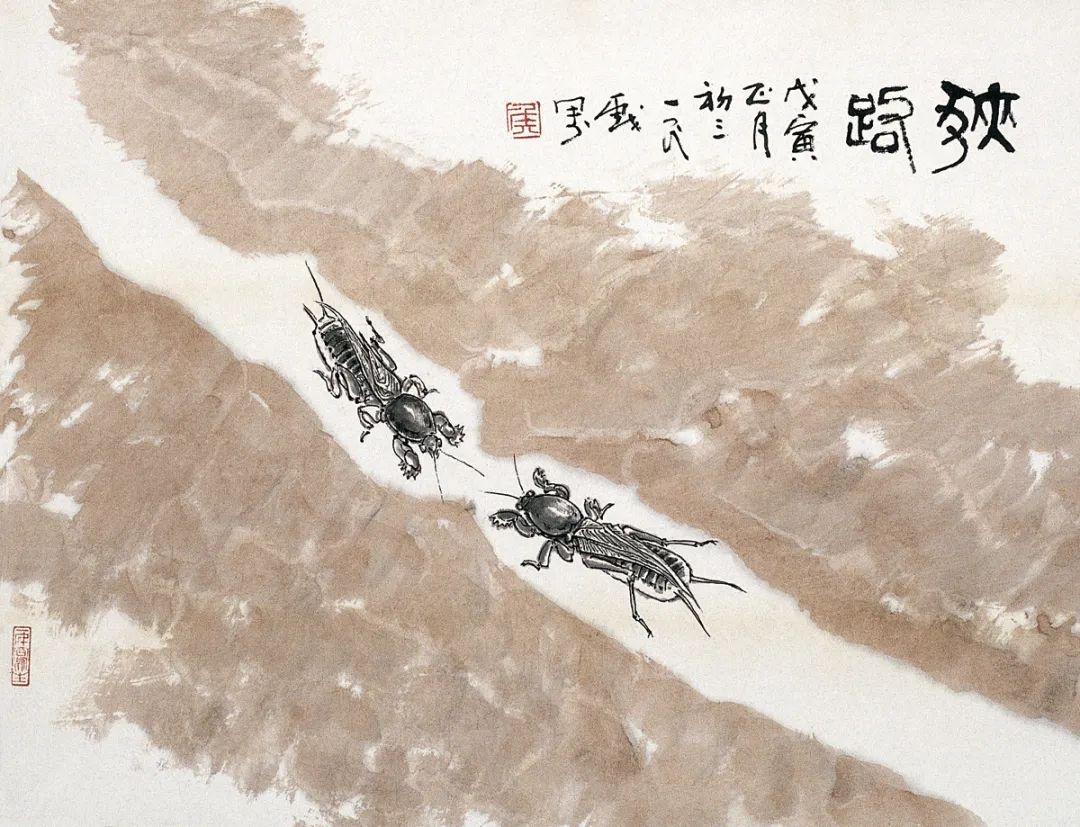 狹
路
戊寅
正月
初三
一民
戲
墨
侯